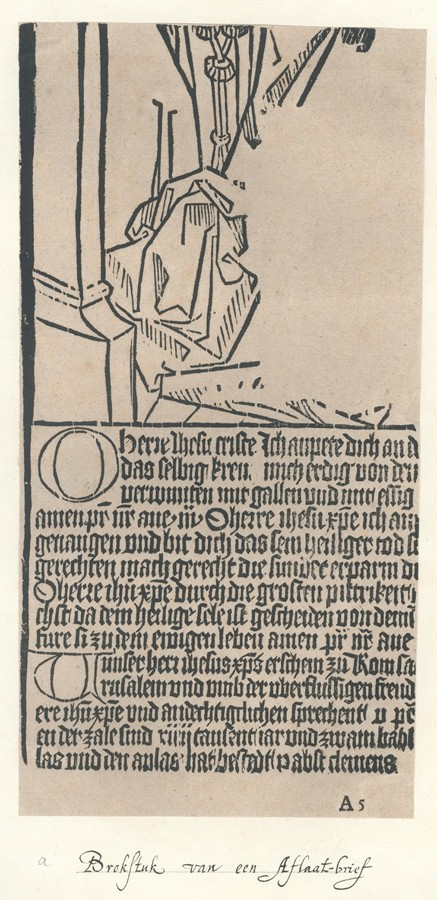 O herre ihesu criste Ich anpete dich an d
das selbig kreu mich erdig von den
verwunten mit gallen vnd mit essig
amen pr nr aue m Oherre ihesu xpe ich an
genaugen vnd bit dich das sein heiliger tod s
gerechten mach gerecht die sunder erparm di
Oherre ihu xpe durch die grosten pittrikeit
chst da dein heilige sele ist gescheiden von deinē
füre si zu dem ewigen leben amen pr nr aue
unser herr ihesus xps erschein zu Rom sa
rusalem vnd vmb der vberflussigen freud
ere ihu xpe vnd andechtigclichen sprechent v pr
en der zale sind xiiij tausent iar vnd zway
las vnd den aplas hat bestedt pabst clemens
A 5
a Brokstuk van een Aflaat-brief